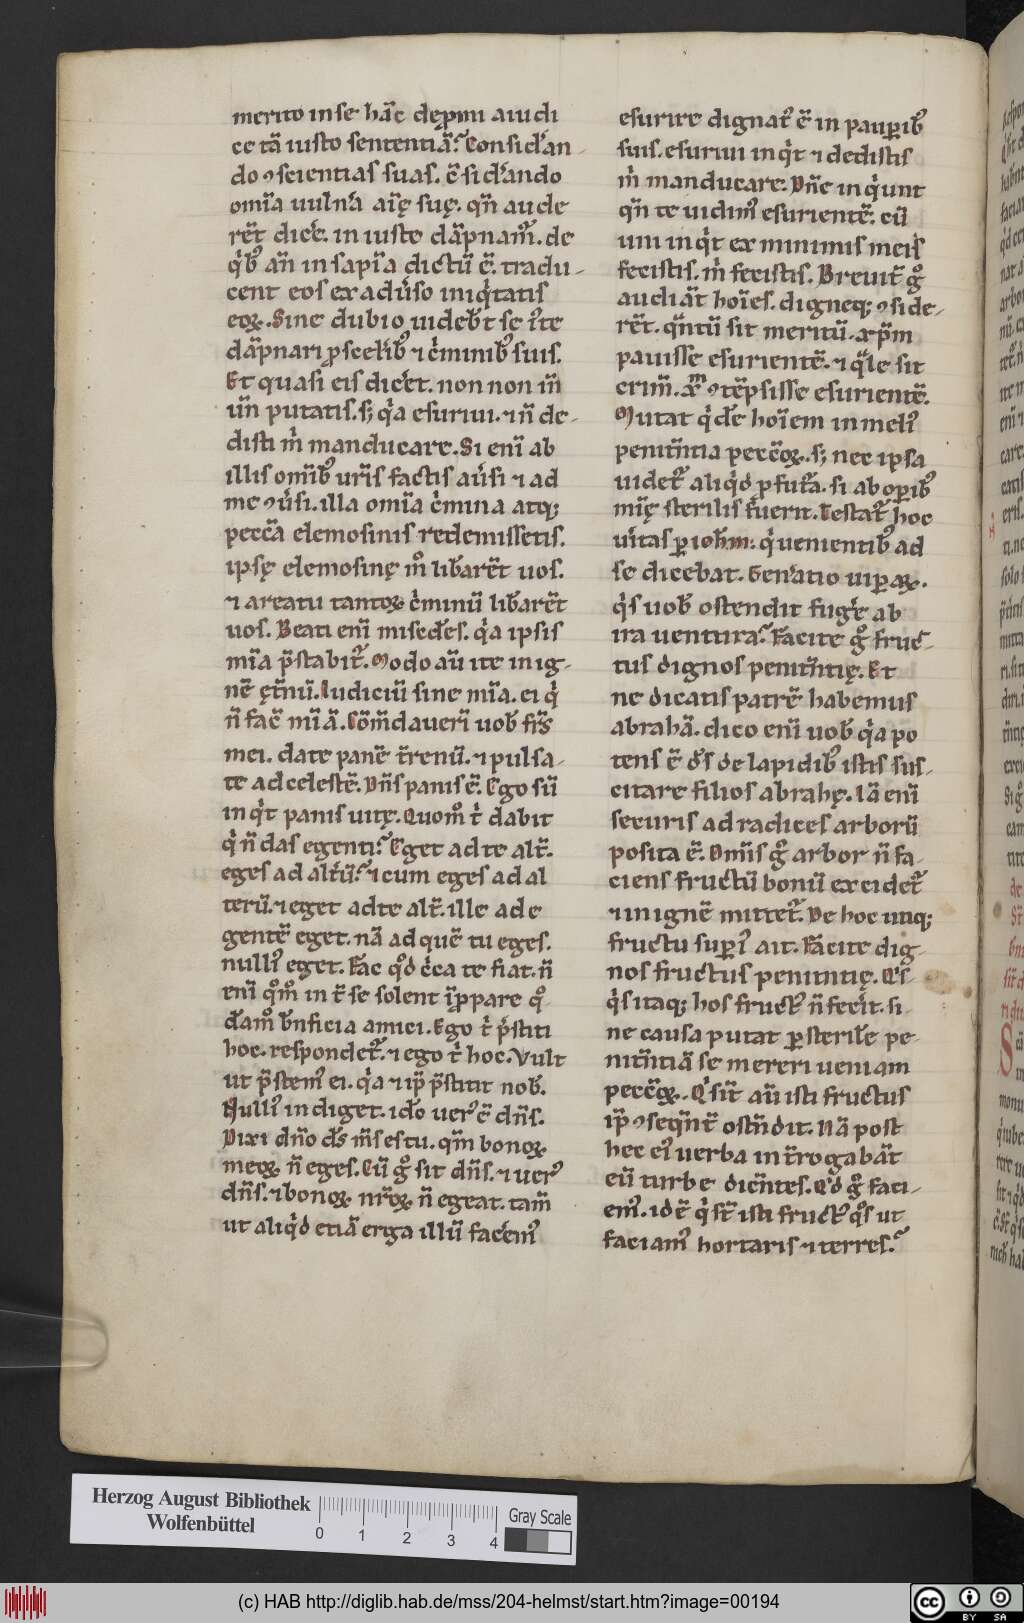 merito in se hãc depͥmi aiudi
ce tã iusto sententiã. Consid̓an-
do ꝯscientias suas. ⁊̃ sid̓ando
om̃ia uuln̓a aĩę suę. qñ aude
rẽt dic̓e. iniuste dãpnam᷒. de
qͥb᷒ añ insapĩa dictũ ẽ. tradu-
cent eos ex adũso iniqͥtatis
eoꝝ. Sine dubio uideb̃t se ĩte
dãpnari ꝓ sceĺib᷒ ⁊ cͥminib᷒ suis.
Et quasi eis dic̓et. non non iñ
uñ putatis. sꝫ qͥa esuriui. ⁊ ñ de-
disti m̃ manducare. Si enĩ ab
illis om̃ib᷒ ur̃is factis au̓si ⁊ ad
me ꝯu̓si. illa om̃ia cͥmina atqꝫ
peccã elemosinis redemissetis.
ipsę elemosinę m̊ lib̓arẽt uos.
⁊ a reatu tantoꝝ cͥminũ lib̓arẽt
uos. Beati enĩ mis̓edes. qͥa ipsis
mĩa p̃stabit᷑. Modo aũ ite in ig-
nẽ ęt̃nũ. Iudiciũ sine mĩa. ei qͥ
ñ facͥ mĩã. Com̃dauerĩ uob̃ fr̃s
mei. date panẽ t̃renũ. ⁊ pulsa-
te ad celestẽ. Dñs panis ẽ. Ego sũ
inqͥt panis uitę. Quom̊ tͥ dabit
qͥ ñ das egenti. Eget ad te alt̃.
eges ad alt̃ũ. ⁊ cum eges ad al
terũ. ⁊ eget ad te alt̃. ille ad e
gentẽ eget. nã ad quẽ tu eges.
nulli᷒ eget. Fac qͦd cͥca te fiat. ñ
enĩ qͦm̊ int̃ se solent ĩp̃ppare qͦ-
dam᷒ bñficia amici. Ego tͥ p̃stiti
hoc. respondet᷑. ⁊ ego tͥ hoc. Vult
ut p̃stem᷒ ei. qͥa ⁊ ip̃ p̃stitit nob̃.
Nulli᷒ indiget. id̓o uer᷒ ẽ dñs.
Dixi dño ds̃ m̃s es tu. qm̃ bonoꝝ
meoꝝ ñ eges. Cũ gͦ sit dñs. ⁊ uer᷒
dñs. ⁊ bonoꝝ nr̃oꝝ ñ egeat. tam̃
ut aliqͥd etiã erga illũ fac̓em᷒
esurire dignat᷑ ẽ in pauꝑib᷒
suis. esuriui inqͥt ⁊ dedistis
m̃ manducare. Dñe inqͥunt
qñ te uidim᷒ esurientẽ. cũ
uni inqͥt ex minimis meis
fecistis. m̃ fecistis. Breuit̃ gͦ
audiãt hoĩes. digneqꝫ ꝯside-
rẽt. qͣntũ sit meritũ. xp̃m
pauisse esurientẽ. ⁊ qͣle sit
crim̃. xp̃m ꝯtẽpsisse esurientẽ.
Mutat qͥdẽ hoĩem in meli᷒
penitñtia peccͦoꝝ. sꝫ nec ipsa
uidet᷑ aliqͥd ꝓfut̃a. si ab oꝑib᷒
mĩę sterilis fuerit. Testat᷑ hoc
u̓itas ꝑ ioh̃m: qͥ uenientib᷒ ad
se dicebat. Gen̓atio uiꝑaꝝ.
qͥs uob̃ ostendit fug̓e ab
ira uentura. Facite gͦ fruc-
tus dignos penitñtię. Et
ne dicatis patrẽ habemus
abrahã. dico enĩ uob̃ qͥa po
tens ẽ ds̃ de lapidib᷒ istis sus-
citare filios abrahę. Iã enĩ
securis ad radices arborũ
posita ẽ. Om̃is gͦ arbor ñ fa-
ciens fructũ bonũ excidet᷑
⁊ in ignẽ mittet᷑. De hoc unqꝫ
fructu suꝑi᷒ ait. Facite dig-
nos fructus penitntię. Qͥs
qͥs itaqꝫ hos fruct᷒ ñ fec̓it. si-
ne causa putat ꝑ sterile pe-
nitñtiã se mereri ueniam
peccͦoꝝ. Qͥ st̃ aũ isti fructus
ip̃ ꝯseqñt᷑ ostñdit. Nã post
hec ei᷒ uerba int̃rogabãt
eũ turbe dicñtes. Qͥd gͦ faci-
em᷒. id ẽ qͥ st̃ isti fruct᷒ qͦs ut
faciam᷒ hortaris ⁊ terres.
Herzog August Bibliothek
Wolfenbüttel
0 1 2 3 4
Gray Scale
(c) HAB http://diglib.hab.de/mss/204-helmst/start.htm?image=00194
cc BY SA